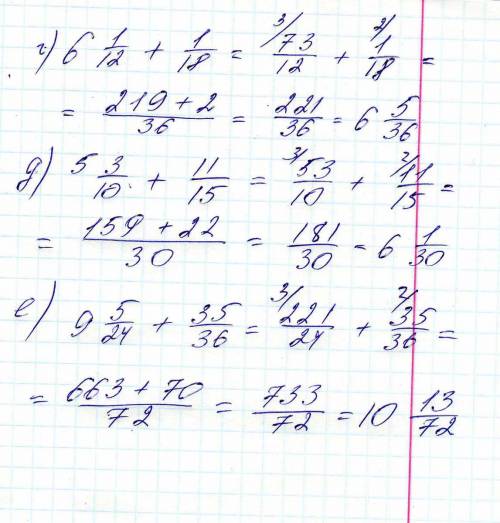 г) 6 1/12 + 1/18 = 3/ 73/12 + 2/ 1/18 =
= (219 + 2)/36 = 221/36 = 6 5/36
д) 5 3/10 + 11/15 = 3/ 53/10 + 2/ 11/15 =
= (159 + 22)/30 = 181/30 = 6 1/30
е) 9 5/24 + 35/36 = 3/ 221/24 + 2/ 35/36 =
= (663 + 70)/72 = 733/72 = 10 13/72